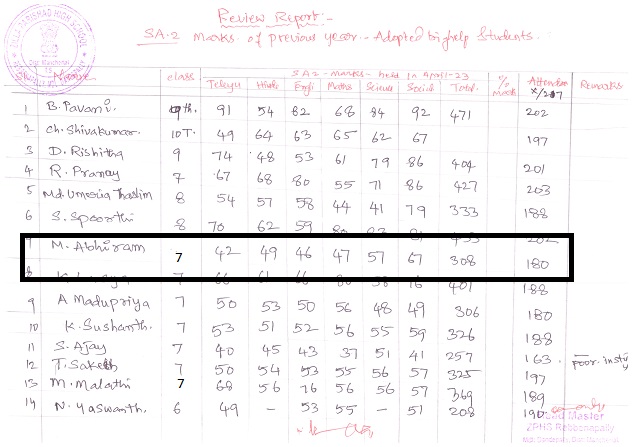 Review Report:-
SA.2 Marks of previous year.. Adopted to help Students.
ZILLA PARISHAD HIGH SCHOOL
Name class SA2 - Marks - held in April-23 Attendance Remarks
Telugu Hindi Engli Maths Science Social Total x/207
1 B. Pavani. 91 54 82 68 84 92 471 202
2 Ch. Shivakumar. 10 T. 49 64 63 65 62 67 197
3 D. Rishitha 9 74 48 53 61 79 86 404 201
4 R. Pranay 7 67 68 80 55 71 86 427 203
5 Md. Thaslim 8 54 57 58 44 41 79 333 188
6 S. Spoorthi 8 70 62 59 202
7 M. Abhiram 7 42 49 46 47 57 67 308 180
8 7 401 188
9 A Madupriya 7 50 53 50 56 48 49 306 180
10 K. Sushanth. 7 53 51 52 56 55 59 326 188
11 S. Ajay 7 40 45 43 37 51 41 257 163. poor.
12 T. Saketh 7 50 54 53 55 56 57 325 197
13 M. Malathi 7 68 56 76 56 56 57 369 189
14 N. Yaswanth. 6 49 - 53 55 - 51 208 190
Head Master
ZPHS Rebbenapally